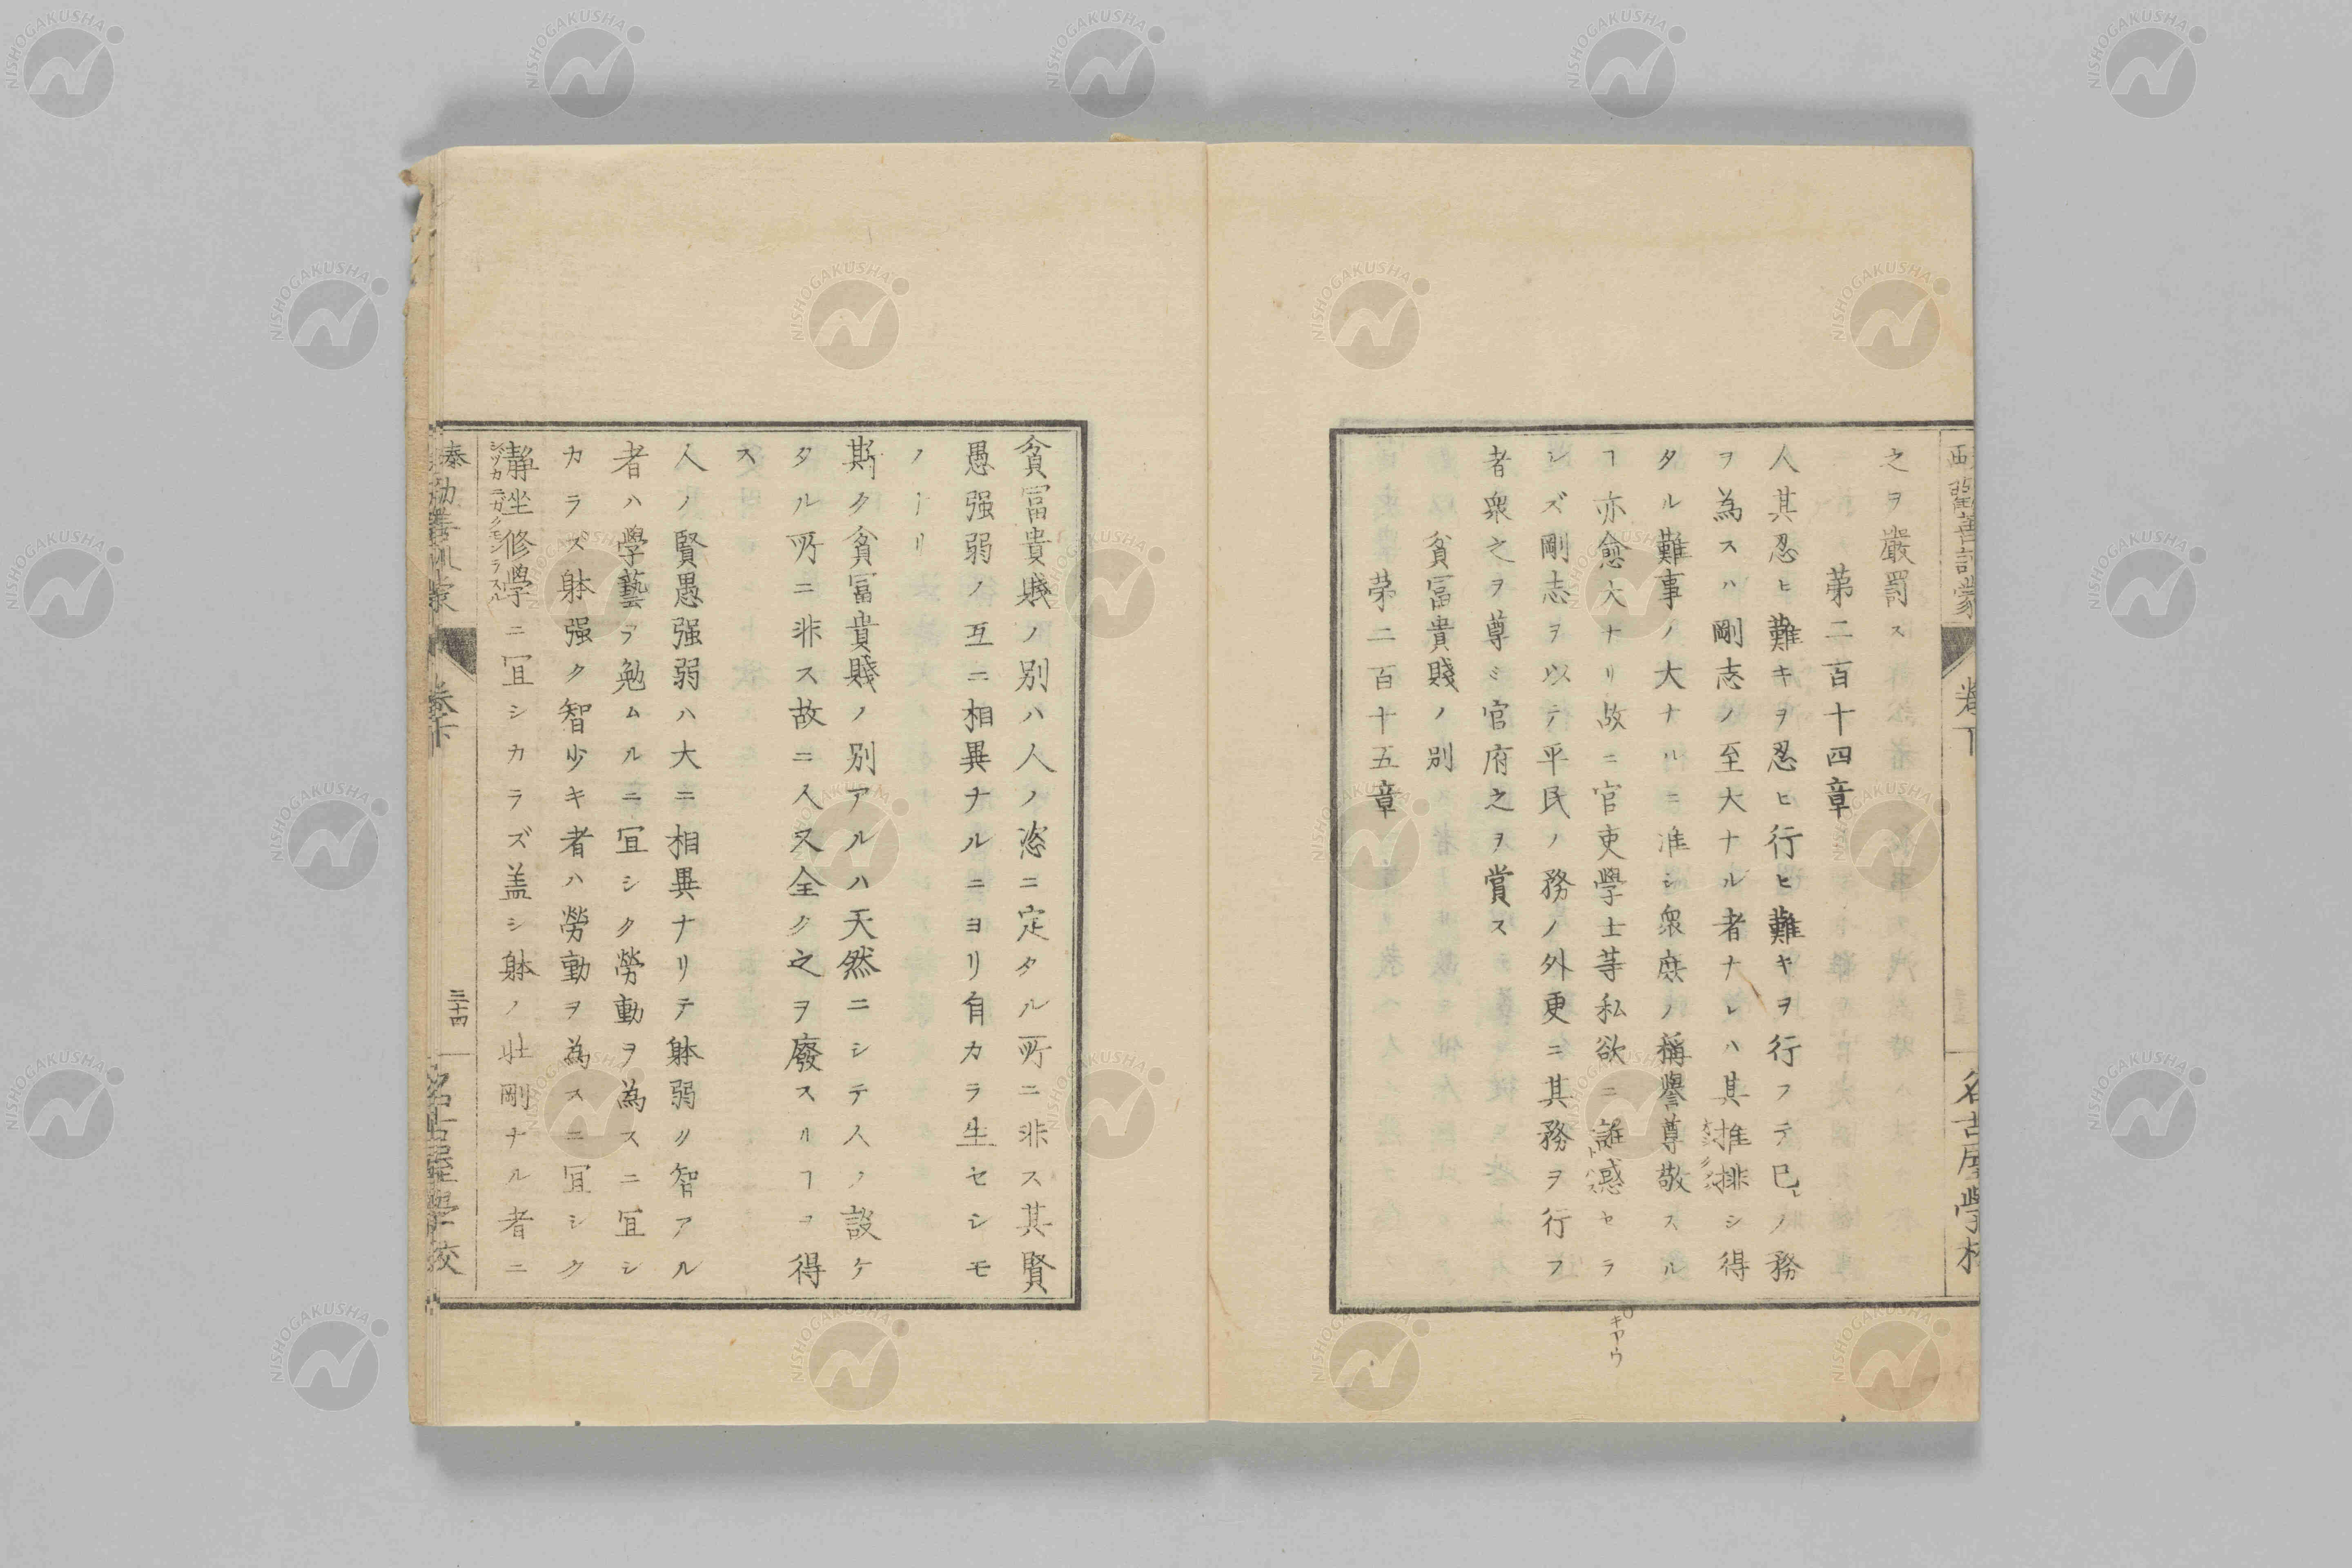 之ヲ嚴罰ス
第二百十四章
人其忍ヒ難キヲ忍ヒ行ヒ難キヲ行フテ已レノ務
ヲ為スハ剛志ノ至大ナル者ナレハ其推排シ得
タル難事ノ大ナルニ准シ衆庶ノ稱譽尊敬スル
ヿ亦愈大ナリ故ニ官吏學士等私欲ニ誑惑セラ
シズ剛志ヲ以テ平民ノ務ノ外更ニ其務ヲ行フ
者衆之ヲ尊ミ官府之ヲ賞ス
貧富貴賤ノ別
第二百十五章
キヤウ
貧富貴賤ノ別ハ人ノ恣ニ定タル所ニ非ス其賢
愚强弱ノ互ニ相異ナルニヨリ自カラ生セシモ
ノナリ
斯ク貧富貴賤ノ別アルハ天然ニシテ人ノ設ケ
タル所ニ非ス故ニ人又全ク之ヲ廢スルヿヲ得
ス
人ノ賢愚强弱ハ大ニ相異ナリテ躰弱ク智アル
者ハ學藝ヲ勉ムルニ冝シク勞動ヲ為スニ冝シ
カラズ躰强ク智少キ者ハ勞動ヲ為スニ冝シク
靜坐修學ニ冝シカラズ盖シ躰ノ壯剛ナル者ニ
シヅカニガクモンヲスル
卷下
三十四
名古屋學校
NISHOGAKUSHA